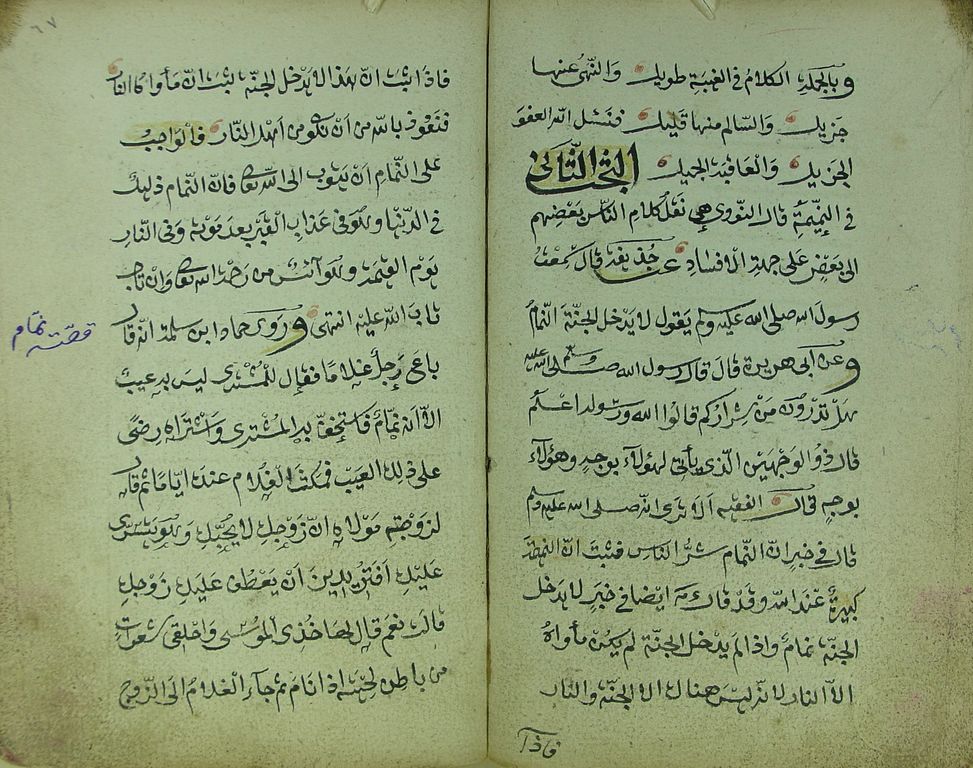 وبالجملة الكلام في الغيبة طويل والنهى عنها
جزيل والسالم منها قليل فنسئل الله العفو
الجزيل والعاقبة الجميل البحث الثانى
في النميمة قال النووى هى نقل كلام الناس بعضهم
الى بعض على جهة الافساد عن حذيفة قال سمعت
رسول الله صلى الله عليه وسلم يقول لا يدخل الجنة النمام
وعن ابى هريرة قال قال رسول الله صلى الله عليه وسلم
هل تدرون من شراركم قالوا الله ورسوله اعلم
قال ذو الوجهين الذى يأتى لهؤلاء بوجه وهؤلاء
بوجه قال الفقيه الا ترى انه صلى الله عليه وسلم
قال في خبر ان النمام شر الناس فثبت ان النميمة
كبيرة عند الله وقد قال ايضا في خبر لا يدخل
الجنة نمام واذا لم يدخل الجنة لم يكن مأواه
الا النار لانه ليس هناك الا الجنة والنار
فاذا
٦٧
فاذا ثبت ان هذا لا يدخل الجنة ثبت ان مأواه النار
فنعوذ بالله من ان نكون من اهل النار فالواجب
على النمام ان يتوب الى الله تعالى فان النمام ذليل
في الدنيا وهو في عذاب القبر بعد موته وفى النار
يوم القيمة وهو آئس من رحمة الله تعالى وان تاب
تاب الله عليه انتهى وروى حماد ابن سلمة انه قال
باع رجل غلاما فقال للمشترى ليس به عيب
الا انه نمام فاستخفه المشترى واشتراه رضى
على ذلك العيب فمكث الغلام عنده اياما ثم قال
لزوجة مولاه ان زوجك لا يحبك وهو يتسرى
عليك افتريدين ان يعطف عليك زوجك
قالت نعم قال لها خذى الموسى واحلقى شعرات
من باطن لحيته اذا نام ثم جاء الغلام الى الزوج
قصة نمام